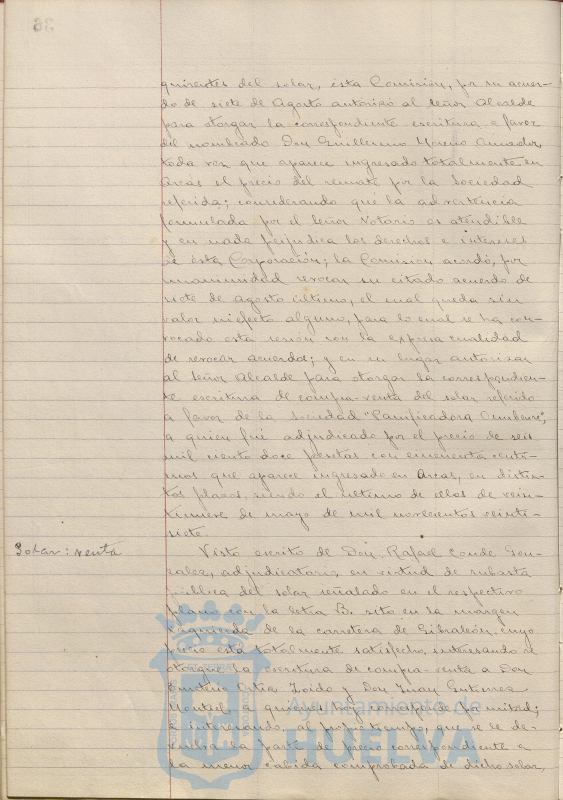 quirentes del solar, ésta Comisión, por su acuer-
do de siete de Agosto autorizó al Señor Alcalde
para otorgar la correspondiente escritura a favor
del nombrado Don Guillermo Moreno Amador,
toda vez que aparece ingresado totalmente en
arcas el precio del remate por la Sociedad
referida; considerando que la advertencia
formulada por el Señor Notario es atendible
y en nada perjudica los derechos e intereses
de ésta Corporación; la Comisión acordó, por
unanimidad revocar su citado acuerdo de
siete de Agosto último, el cual queda sin
valor ni efecto alguno, para lo cual se ha con-
vocado esta sesión con la expresa cualidad
de revocar acuerdos; y en su lugar autorizar
al Señor Alcalde para otorgar la correspondien-
te escritura de compra-venta del solar referido
a favor de la Sociedad "Panificadora Onubense",
a quien fué adjudicado por el precio de seis
mil ciento doce pesetas con cincuenta centi-
mos que aparece ingresado en Arcas, en distin-
tos plazos, siendo el último de ellos de vein-
tinueve de mayo de mil novecientos veinti-
siete.
Solar: venta
Visto escrito de Don Rafael Conde Gon-
zalez, adjudicatario en virtud de subasta
pública del solar señalado en el respectivo
plano con la letra B. sito en la margen
izquierda de la carretera de Gibraleón, cuyo
precio está totalmente satisfecho, interesando se
otorgue la escritura de compra-venta a Don
Emeterio Ortia Toido y Don Juan Gutierrez
Montiel a quienes hoy corresponde por mitad;
e interesando, al propio tiempo, que se le de-
vuelva la parte de precio correspondiente a
la menor cabida comprobada de dicho solar,
Ayuntamiento de
HUELVA
36